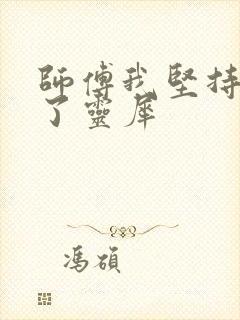 師傅我堅持
了靈犀
馮碩